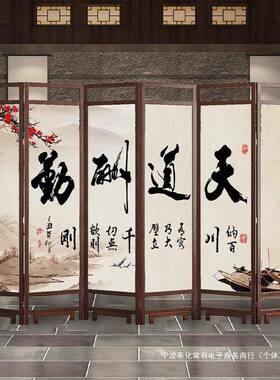 天道酬勤
纳百
川
有容
乃大
壁立
千
仞无
欲则
刚
宁波奉化常有电子商务商行（个体